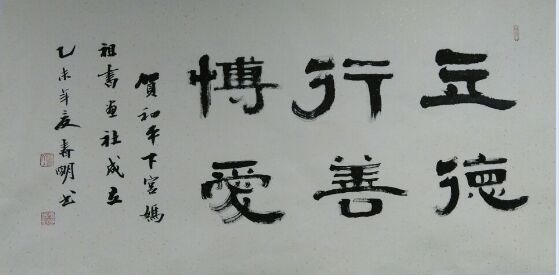 立德
行善
博愛
賀和平下宮媽
祖書畫社成立
乙未年夏壽明書